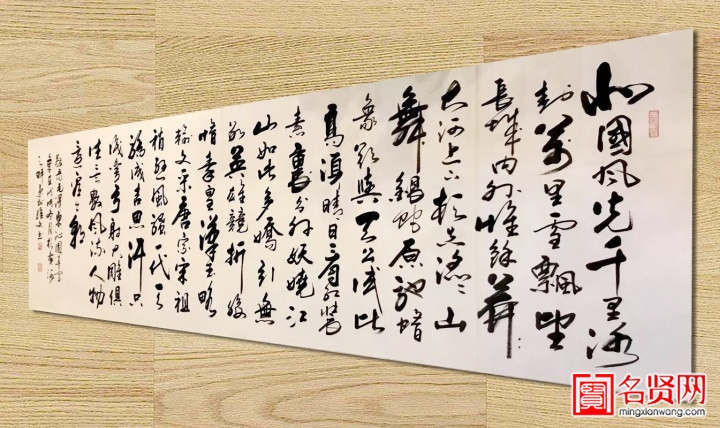 北國風光千里冰
封萬里雪飄望
長城内外惟餘莽々
大河上下頓失滔々山
舞銀蛇原馳蠟
象欲與天公試比
高須晴日看紅裝
素裹分外妖嬈江
山如此多嬌引無
數英雄競折腰
惜秦皇漢武略
輸文采唐宗宋祖
稍遜風騷一代天
驕成吉思汗只
識彎弓射大雕俱
往矣數風流人物
還看今朝
毛澤東沁園春雪
名贤网
mingxianwang.com